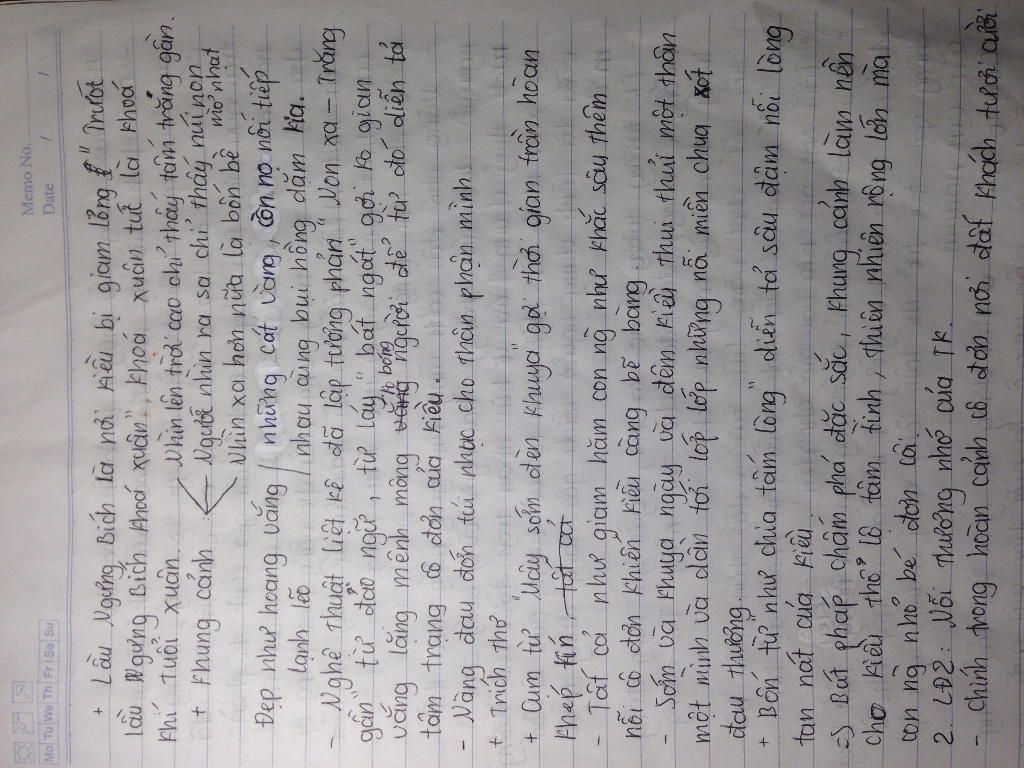 Memo No.
Date / /
Mo Tu We Th Fr Sa Su
+ Lầu Ngưng Bích là nơi Kiều bị giam lỏng " Trước
lầu Ngưng Bích khoá xuân", khoá xuân tức là khoá
khí tuổi xuân
+ Khung cảnh : Nhìn lên trời cao chỉ thấy tấm trăng gần.
Người nhìn ra sa chỉ thấy núi non
mờ nhạt
Nhìn xa hơn nữa là bốn bề
Đẹp như hoang vắng / những cát vàng, cồn nọ nối tiếp
lạnh lẽo / nhau cùng bụi hồng dặm kia.
- Nghệ thuật liệt kê đã lập tương phản " Non xa - Trăng
gần" từ đảo ngữ, từ láy " bát ngát" gợi ko gian
vắng lặng mênh mông vắng ko bóng người để từ đó diễn tả
tâm trạng cô đơn của Kiều.
- Nàng đau đớn tủi nhục cho thân phận mình
+ Trích thơ
+ Cụm từ " Mây sớm đèn khuya" gợi thời gian tuần hoàn
khép kín, tất cả
- Tất cả như giam hãm con ng như khắc sâu thêm
nỗi cô đơn khiến Kiều càng bẽ bàng.
- Sớm và khuya ngày và đêm Kiều thui thủi một thân
một mình và dồn tới lớp lớp những nỗi niềm chua xót
đau thương.
+ Bốn từ " như chia tấm lòng" diễn tả sâu đậm nỗi lòng
tan nát của Kiều
=> Bút pháp chấm phá đặc sắc, khung cảnh làm nền
cho Kiều thổ lộ tâm tình, thiên nhiên rộng lớn mà
con ng nhỏ bé đơn côi.
2. LĐ2: Nỗi thương nhớ của TK.
- Chính trong hoàn cảnh cô đơn nơi đất khách